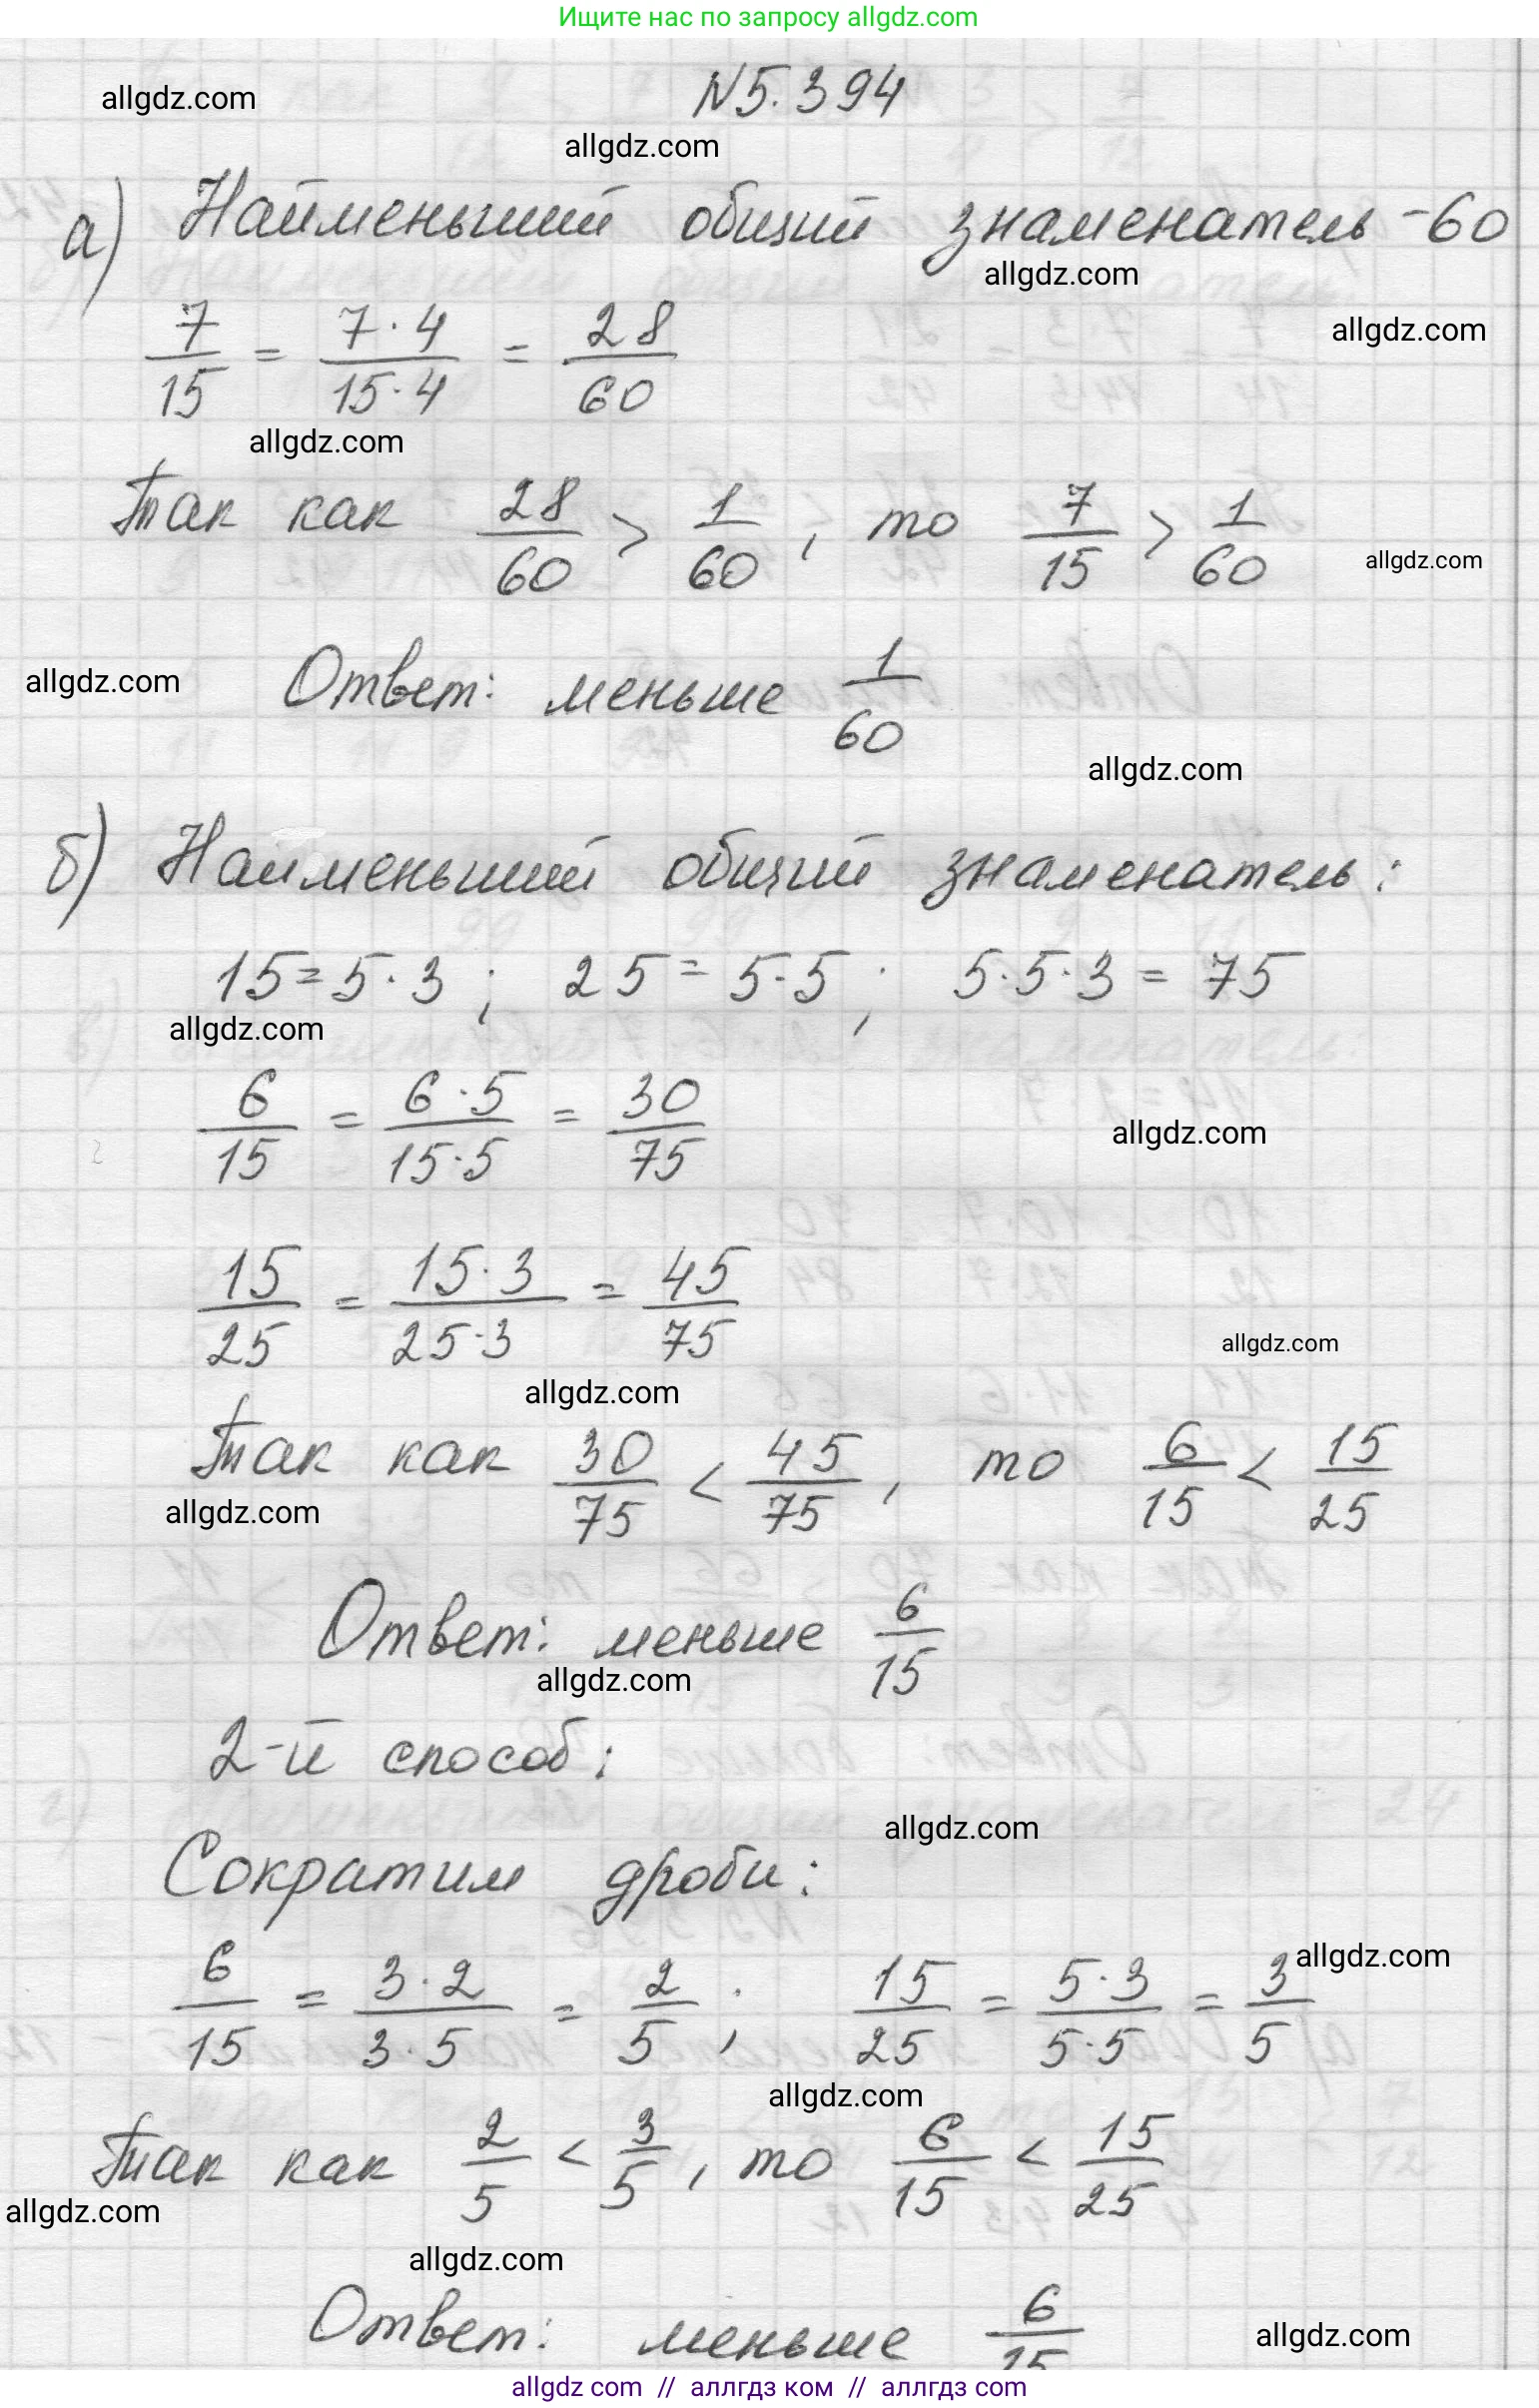 Ищите нас по запросу allgdz.com
№5.394
allgdz.com
allgdz.com
а) Найменьший общий знаменатель - 60
allgdz.com
allgdz.com
7/15 = 7·4/15·4 = 28/60
allgdz.com
Так как 28/60 > 1/60, то 7/15 > 1/60
allgdz.com
allgdz.com
Ответ: меньше 1/60
allgdz.com
б) Найменьший общий знаменатель:
15 = 5·3; 25 = 5·5; 5·5·3 = 75
allgdz.com
6/15 = 6·5/15·5 = 30/75
allgdz.com
15/25 = 15·3/25·3 = 45/75
allgdz.com
allgdz.com
Так как 30/75 < 45/75, то 6/15 < 15/25
allgdz.com
Ответ: меньше 6/15
allgdz.com
2-й способ:
allgdz.com
Сократим дроби:
allgdz.com
6/15 = 3·2/3·5 = 2/5; 15/25 = 5·3/5·5 = 3/5
allgdz.com
Так как 2/5 < 3/5, то 6/15 < 15/25
allgdz.com
allgdz.com
Ответ: меньше 6/15
allgdz.com
allgdz com // аллгдз ком // аллгдз com